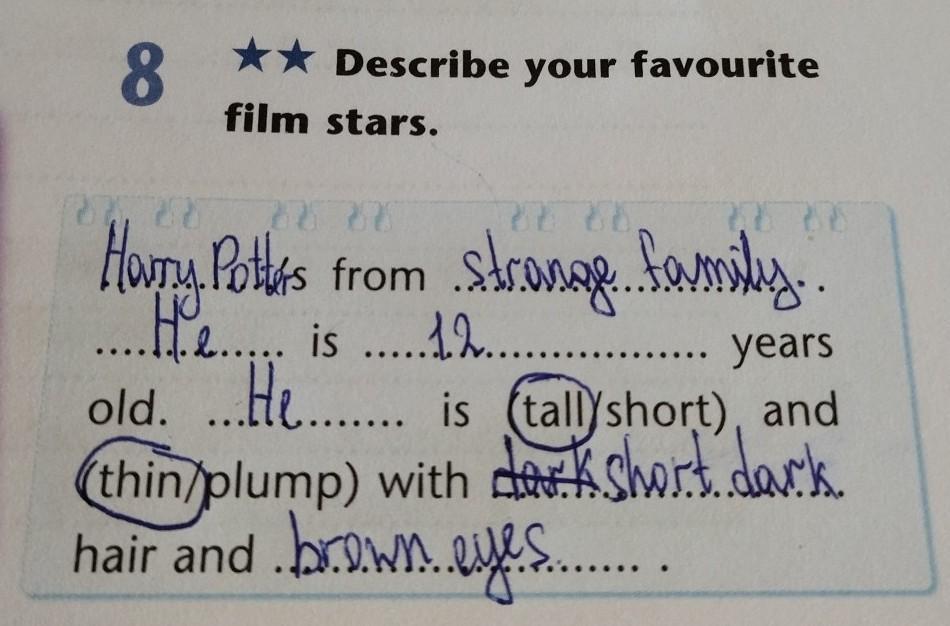 8 ★★ Describe your favourite
film stars.
Harry Potter's from strange family.
He is 12 years
old. He is (tall/short) and
(thin/plump) with dark short dark
hair and brown eyes.